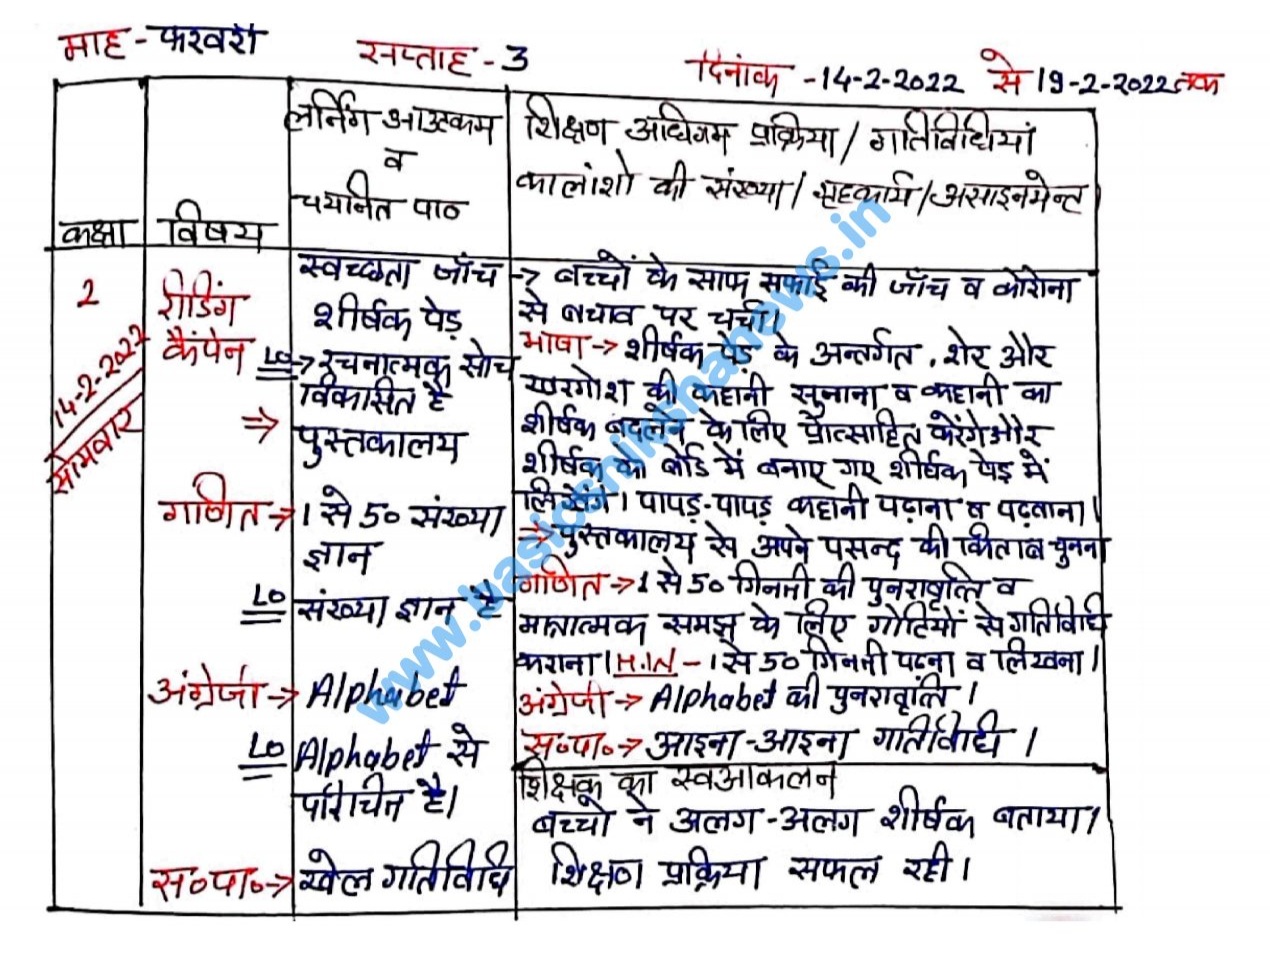 माह - फरवरी
सप्ताह - 3
दिनांक - 14-2-2022 से 19-2-2022 तक
कक्षा
विषय
लर्निंग आउटकम
व
चयनित पाठ
शिक्षण अधिगम प्रक्रिया / गतिविधियां
कालांशो की संख्या / गृहकार्य / असाइनमेन्ट
2
14-2-2022
सोमवार
रीडिंग
कैंपेन
स्वच्छता जाँच
शीर्षक पेड़
LO → रचनात्मक सोच
विकासित है
⇒ पुस्तकालय
गणित → 1 से 50 संख्या
ज्ञान
LO संख्या ज्ञान है
अंग्रेजी → Alphabet
LO Alphabet से
परिचित है।
स०पा० → खेल गतिविधि
→ बच्चों के साफ सफाई की जाँच व कोरोना
से बचाव पर चर्चा।
भाषा → शीर्षक पेड़ के अन्तर्गत, शेर और
खरगोश की कहानी सुनाना व कहानी का
शीर्षक बदलने के लिए प्रोत्साहित करेंगे और
शीर्षक को बोर्ड में बनाए गए शीर्षक पेड़ में
लिखेंगे। पापड़-पापड़ कहानी पढ़ाना व पढ़वाना।
→ पुस्तकालय से अपने पसन्द की किताब चुनना
गणित → 1 से 50 गिनती की पुनरावृत्ति व
मात्रात्मक समझ के लिए गोटियों से गतिविधि
कराना। H.W - 1 से 50 गिनती पढ़ना व लिखना।
अंग्रेजी → Alphabet की पुनरावृत्ति।
स०पा० → आइना-आइना गतिविधि।
शिक्षक का स्वआकलन
बच्चो ने अलग-अलग शीर्षक बताया।
शिक्षण प्रक्रिया सफल रही।
www.basicshikshanews.in